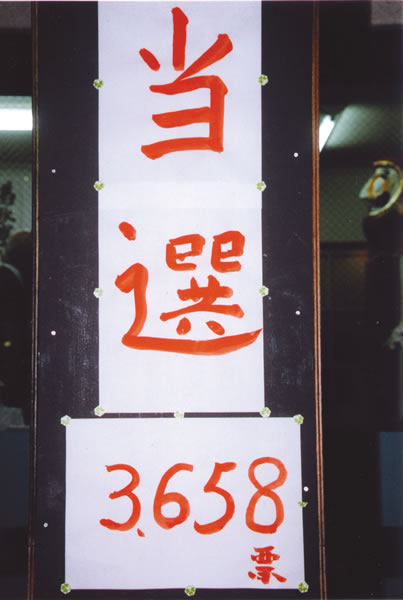 当
選
3,658
票